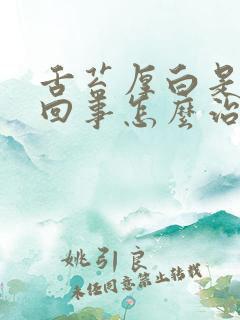 舌苔厚白是
回事怎麼治
姚引良
未经同意禁止转载